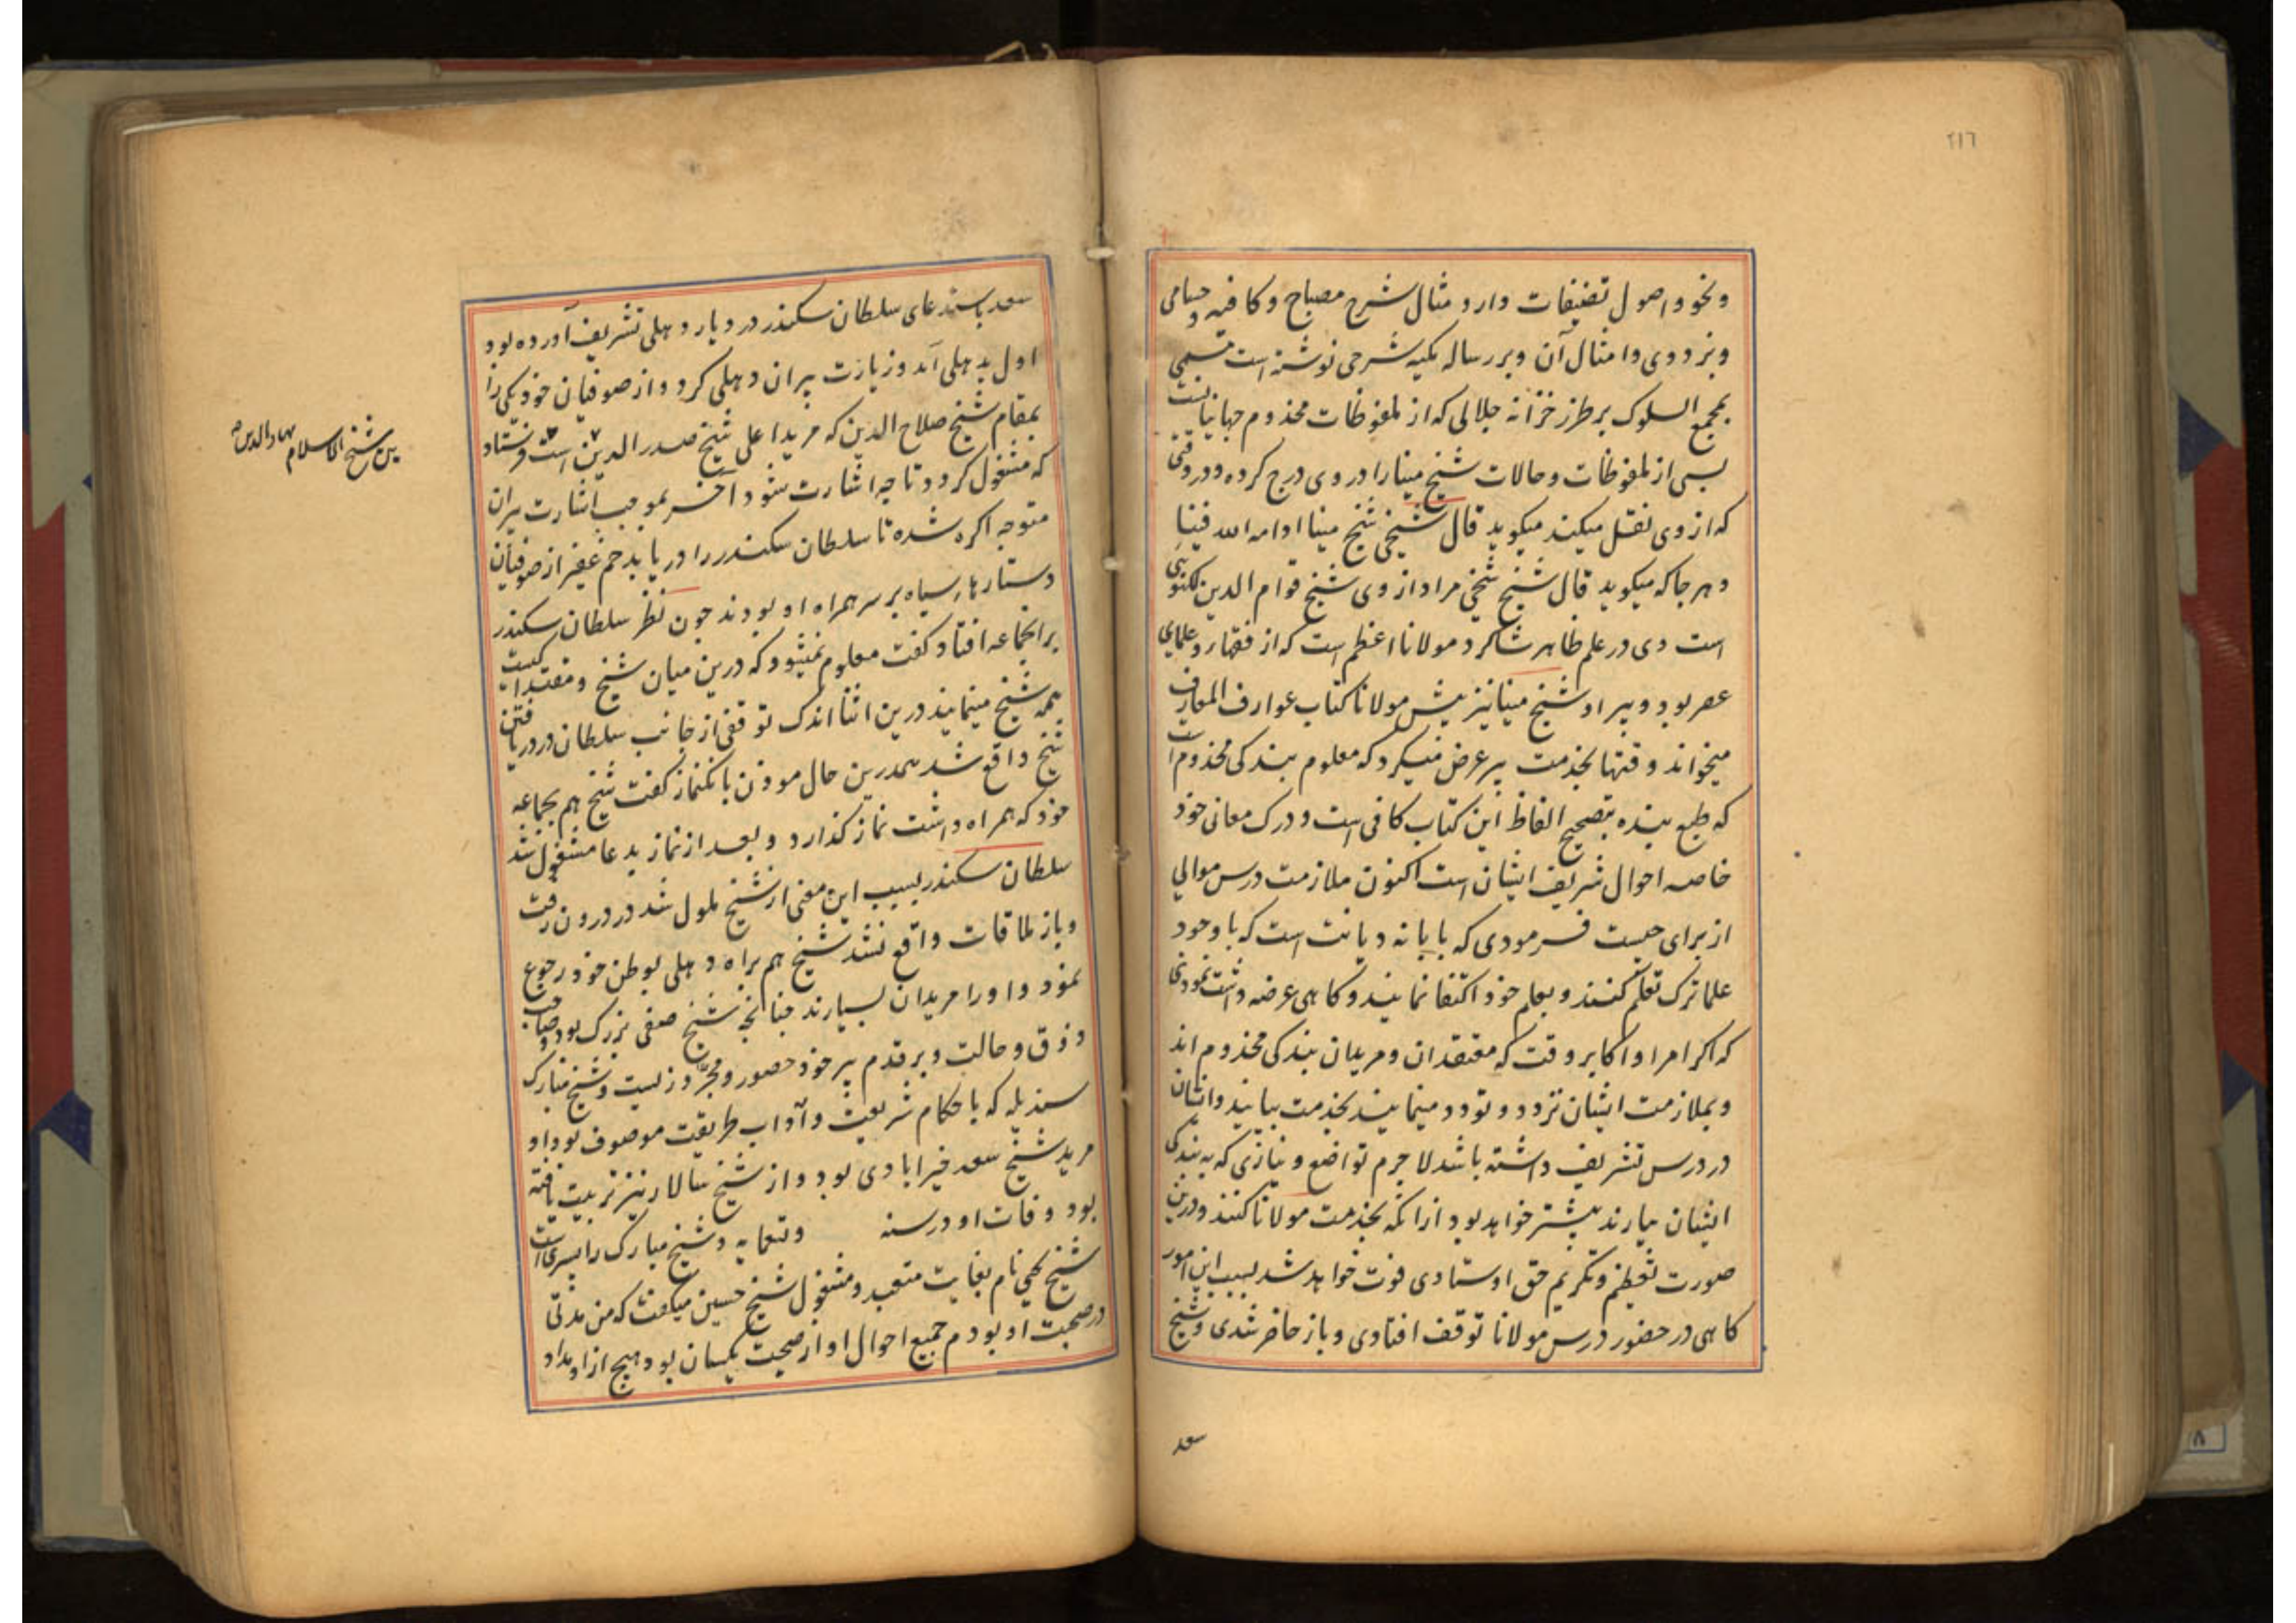 ۲۱٦
ونحو واصول تصنیفات دارد مثال شرح مصباح وکافیه و حسامی
وبزدوی وامثال آن وبر رساله مکیه شرحی نوشته است مسمی
بمجمع السلوک بر طرز خزانه جلالی که از ملفوظات مخدوم جهانیانست
بسی از ملفوظات وحالات شیخ مینا را در وی درج کرده ودر وقتی
که از وی نقل میکند میکوید قال شیخی شیخ مینا ادامه الله فینا
وهر جا که میکوید قال شیخ شیخی مراد از وی شیخ قوام الدین لکنوئی
است وی در علم ظاهر شاکرد مولانا اعظم است که از فقها وعلمای
عصر بود وپیر او شیخ مینا نیز پیش مولانا کتاب عوارف المعارف
میخواند وقتها بخدمت پیر عرض میکرد که معلوم بندکی مخدوم است
که طبع بنده بتصحیح الفاظ این کتاب کافی است ودرک معانی خود
خاصه احوال شریف ایشان است اکنون ملازمت درس موالی
از برای چیست فرمودی که بابا نه دیانت است که با وجود
علما ترک تعلم کنند وبعلم خود اکتفا نمایند وکاهی عرضه داشت نمودی
که اکر امرا واکابر وقت که معتقدان ومریدان بندکی مخدوم اند
وبملازمت ایشان تردد وتودد مینمایند بخدمت بیایند وایشان
در درس تشریف داشته باشد لاجرم تواضع ونیازی که به بندکی
ایشان بیارند بیشتر خواهد بود از آنکه بخدمت مولانا کنند ودرین
صورت تعظیم وتکریم حق اوستادی فوت خواهد شد بسبب این امور
کاهی در حضور درس مولانا توقف افتادی وباز حاضر شدی وشیخ
سعد
سعد باستدعای سلطان سکندر در دیار دهلی تشریف آورده بود
اول بدهلی آمد وزیارت پیران دهلی کرد واز صوفیان خود یکی را
بمقام شیخ صلاح الدین که مرید اعلی شیخ صدر الدین است فرستاد
بن شیخ الاسلام بهاء الدین
که مشغول کردد تا چه اشارت شود آخر بموجب اشارت پیران
متوجه اکره شده تا سلطان سکندر را دریابد جم غفیر از صوفیان
دستارهاء سیاه بر سر همراه او بودند چون نظر سلطان سکندر
بر انجماعه افتاد کفت معلوم نمیشود که درین میان شیخ ومقتدا کیست
همه شیخ مینمایند درین اثنا اندک توقفی از جانب سلطان در دریافتن
شیخ واقع شد همدرین حال موذن بانکنماز کفت شیخ هم بجماعه
خود که همراه داشت نماز کذارد وبعد از نماز بدعا مشغول شد
سلطان سکندر بسبب این معنی از شیخ ملول شد در درون رفت
وباز ملاقات واقع نشد شیخ هم براه دهلی بوطن خود رجوع
نمود واورا مریدان بسیارند چنانچه شیخ صفی بزرک بود وصاحب
ذوق وحالت وبر قدم پیر خود حصور ومجرد زیست وشیخ مبارک
سندیله که باحکام شریعت وآداب طریقت موصوف بود او
مرید شیخ سعد خیرابادی بود واز شیخ سالار نیز تربیت یافته
بود وفات او در سنه وتسعمایه وشیخ مبارک را پسری است
شیخ نام بغایت متعبد ومشغول شیخ حسین میکفت که من مدتی
در صحبت او بودم جمیع احوال او از صحبت یکسان بود هیچ از اوراد